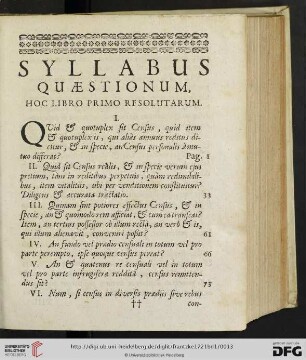 SYLLABUS
QUÆSTIONUM,
HOC LIBRO PRIMO RESOLUTARUM.
I.
QVid & quotuplex sit Census, quid item
& quotuplex is, qui aliàs annuus reditus di-
citur, & in specie, an Census personalis à mu-
tuo differat? Pag. 1
II. Quid sit Census reàlis, & in specie verum ejus
pretium, tùm in reditibus perpetuis, quàm redimibili-
bus, item vitalitiis, ubi per venditionem constituitur?
Diligens & accurata tractatio. 33
III. Quinam sint potiores effectus Census, & in
specie, an & quomodo rem afficiat, & cum ea transeat?
Item, an tertius possessor ob illum rectà, an verò & is,
qui illum alienavit, conveniri possit? 61
IV. An fundo vel prædio censuali in totum vel pro
parte perempto, ipse quoque census pereat? 66
V. An & quatenus re censuali vel in totum
vel pro parte infrugifera reddita, census remitten-
dus sit? 73
VI. Num, si census in diversis prædiis sive rebus
†† con-
http://digi.ub.uni-heidelberg.de/diglit/
© Universitätsbibliothek Heidelberg